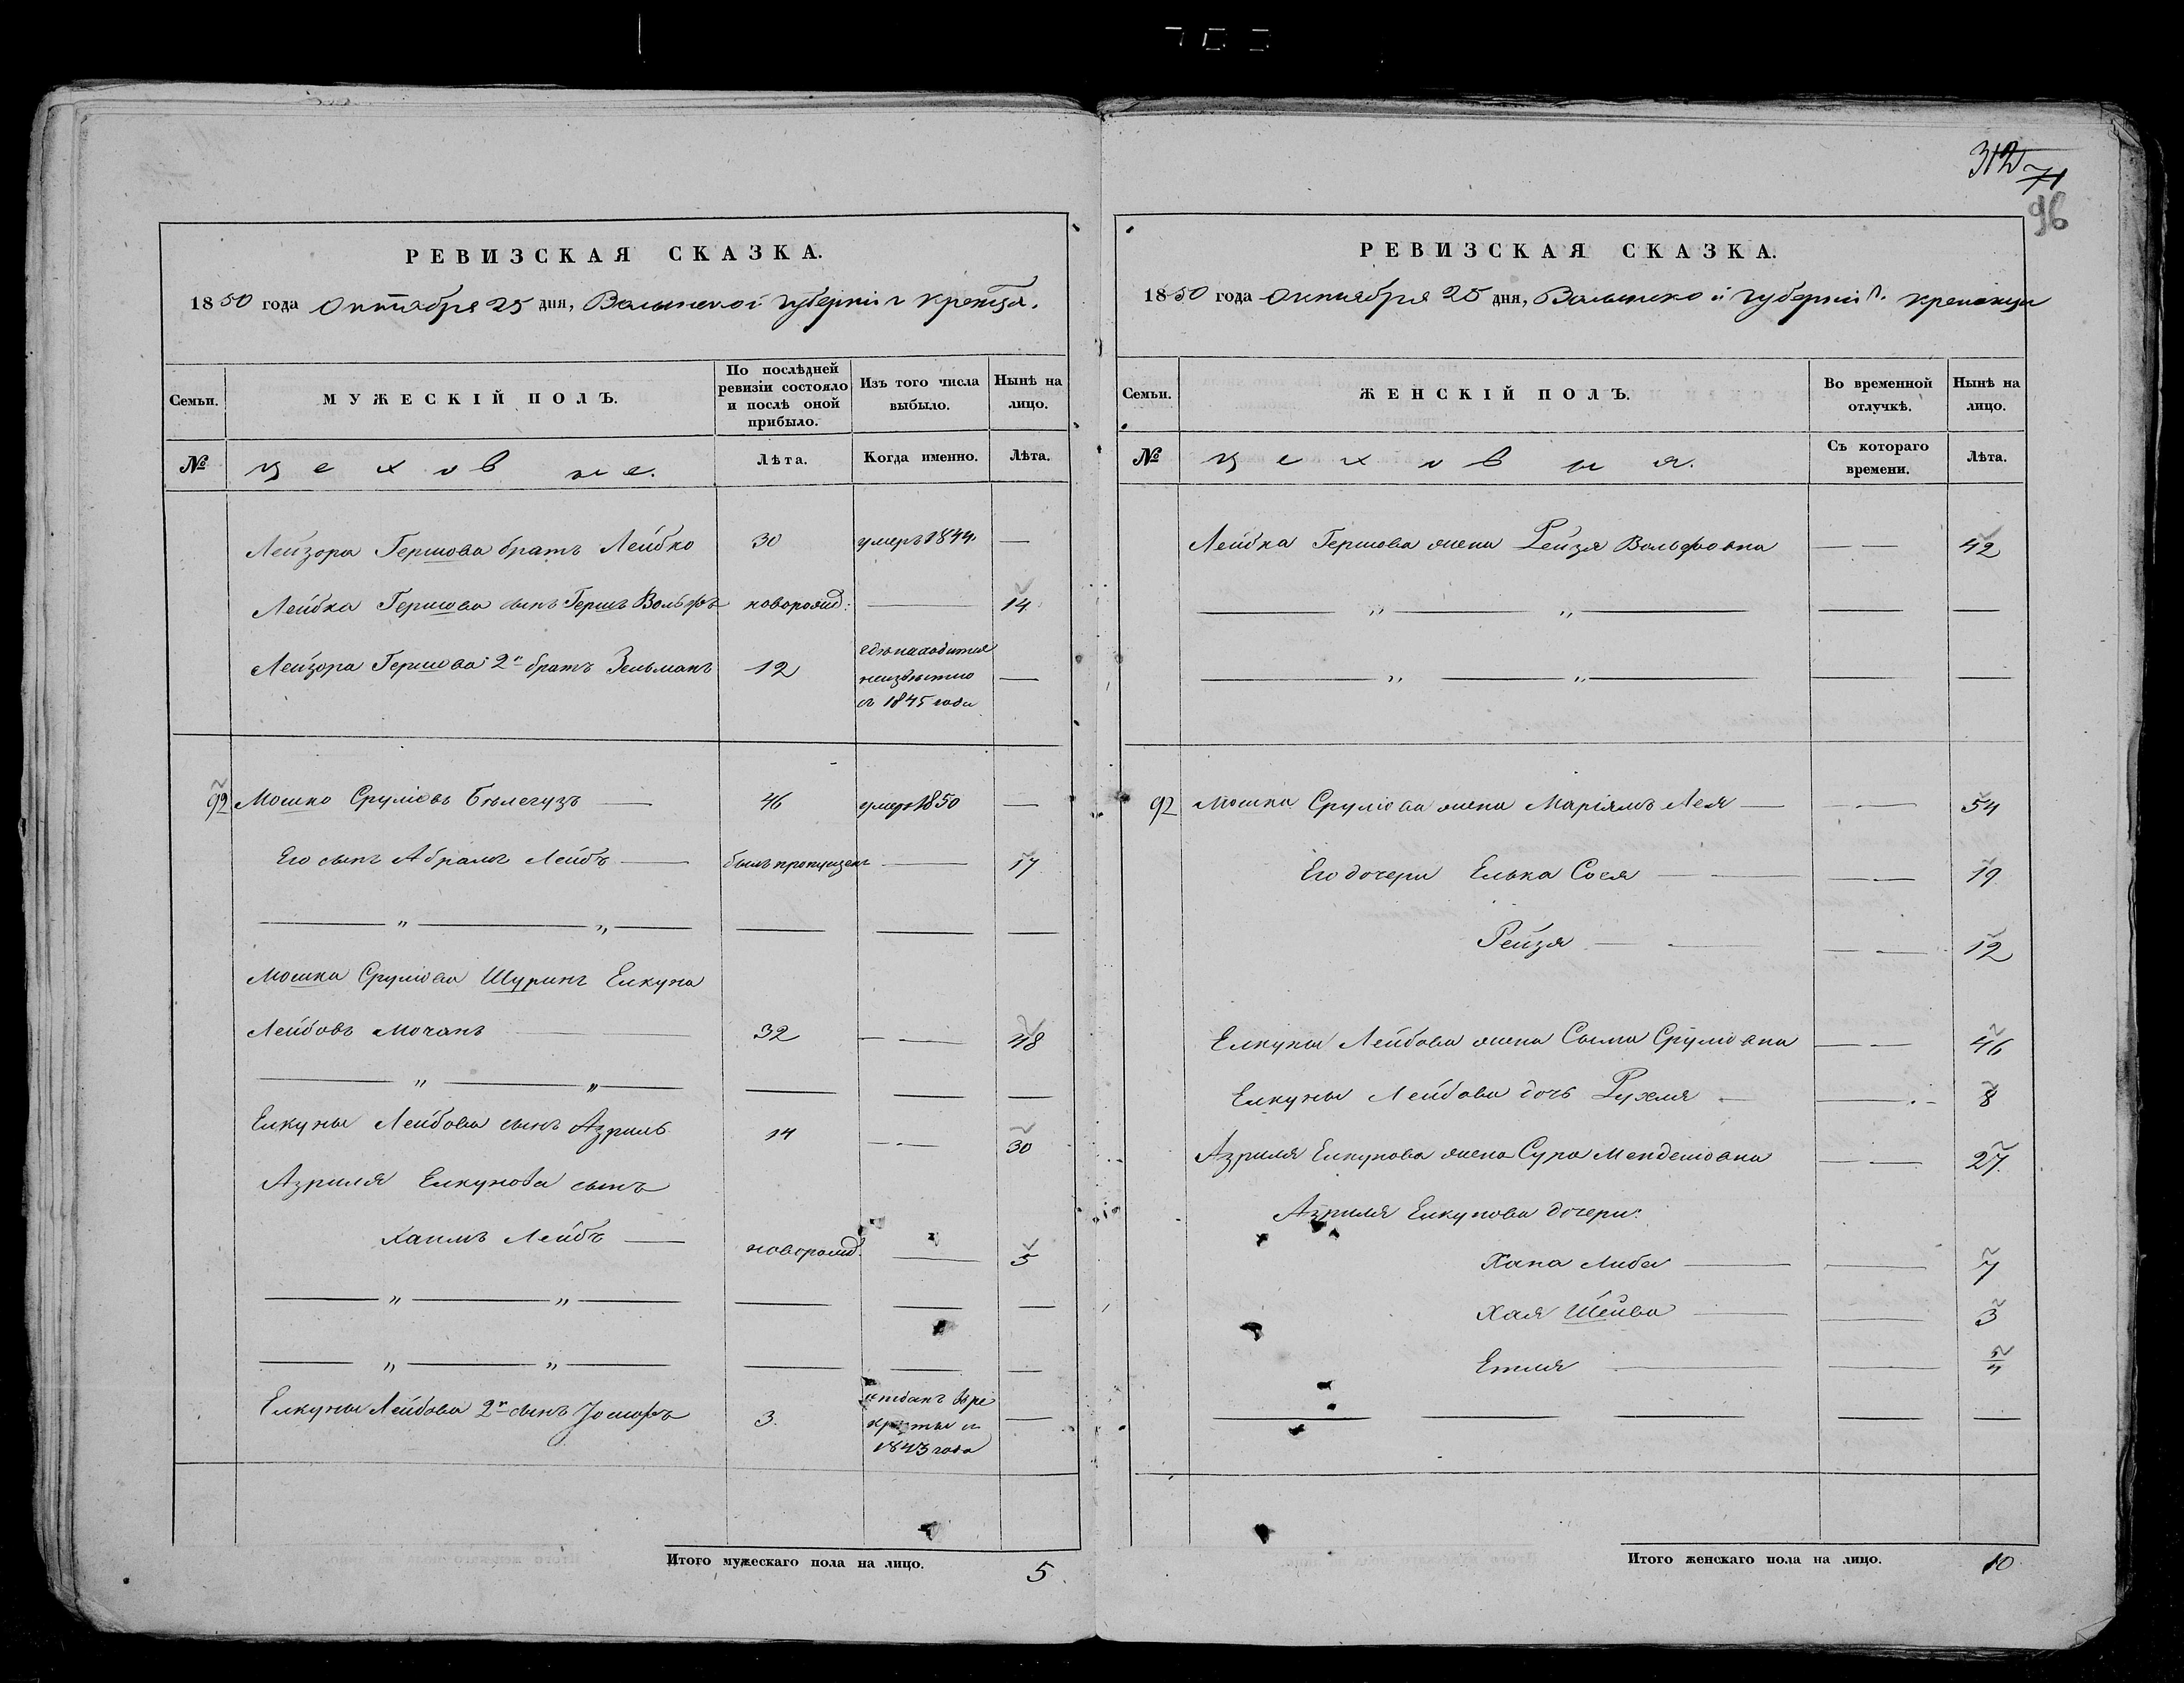 312 71
96
РЕВИЗСКАЯ СКАЗКА.
1850 года Октября 25 дня, Волынской губерніи г Кремца.
Семьи.
МУЖЕСКІЙ ПОЛЪ.
По послѣдней
ревизіи состояло
и послѣ оной
прибыло.
Изъ того числа
выбыло.
Нынѣ на
лицо.
№
цеховые.
Лѣта.
Когда именно.
Лѣта.
Лейзора Гершова братъ Лейбко 30 умеръ 1844. —
Лейбка Гершова сынъ Гершъ Вольфъ новорожд: — 14
Лейзора Гершова 2й братъ Зельманъ 12 гдѣ находится
неизвѣстно —
съ 1845 года
92 Мошко Сруліовъ Бѣлегузъ — 46 умеръ 1850 —
Его сынъ Абрамъ Лейбъ — былъ пропущенъ — 17
— " — " — — — —
Мошка Сруліова Шуринъ Елкуна
Лейбовъ Мочанъ — 32 — — 48
— " — " — — — —
Елкуны Лейбова сынъ Азриль 14 — — 30
Азриля Елкунова сынъ
Хаимъ Лейбъ — новорожд. — 5
— " — " — — — —
— " — " — — — —
Елкуны Лейбова 2й сынъ Іосифъ 3. отданъ в ре
круты въ —
1843 года
Итого мужескаго пола на лицо. 5.
РЕВИЗСКАЯ СКАЗКА.
1850 года Октября 25 дня, Волынской губерніи г. Кременца
Семьи.
ЖЕНСКІЙ ПОЛЪ.
Во временной
отлучкѣ.
Нынѣ на
лицо.
№
цеховыя.
Съ котораго
времени.
Лѣта.
Лейбка Гершова жена Рейзя Вольфовна — — 42
— " — " — — —
— " — " — — —
92 Мошка Сруліова жена Маріямъ Лея — — — 54
Его дочери Елька Сося — — — — 19
Рейзя — — — — 12
Елкуны Лейбова жена Сыма Сруліовна — — 46
Елкуны Лейбова дочь Рухля — — — 8
Азриля Елкунова жена Сура Менделіовна — — 27.
Азриля Елкунова дочери:
Хана Либа — — 7
Хая Шейва — — 3
Етля — —
— — — — — —
Итого женскаго пола на лицо. 10.